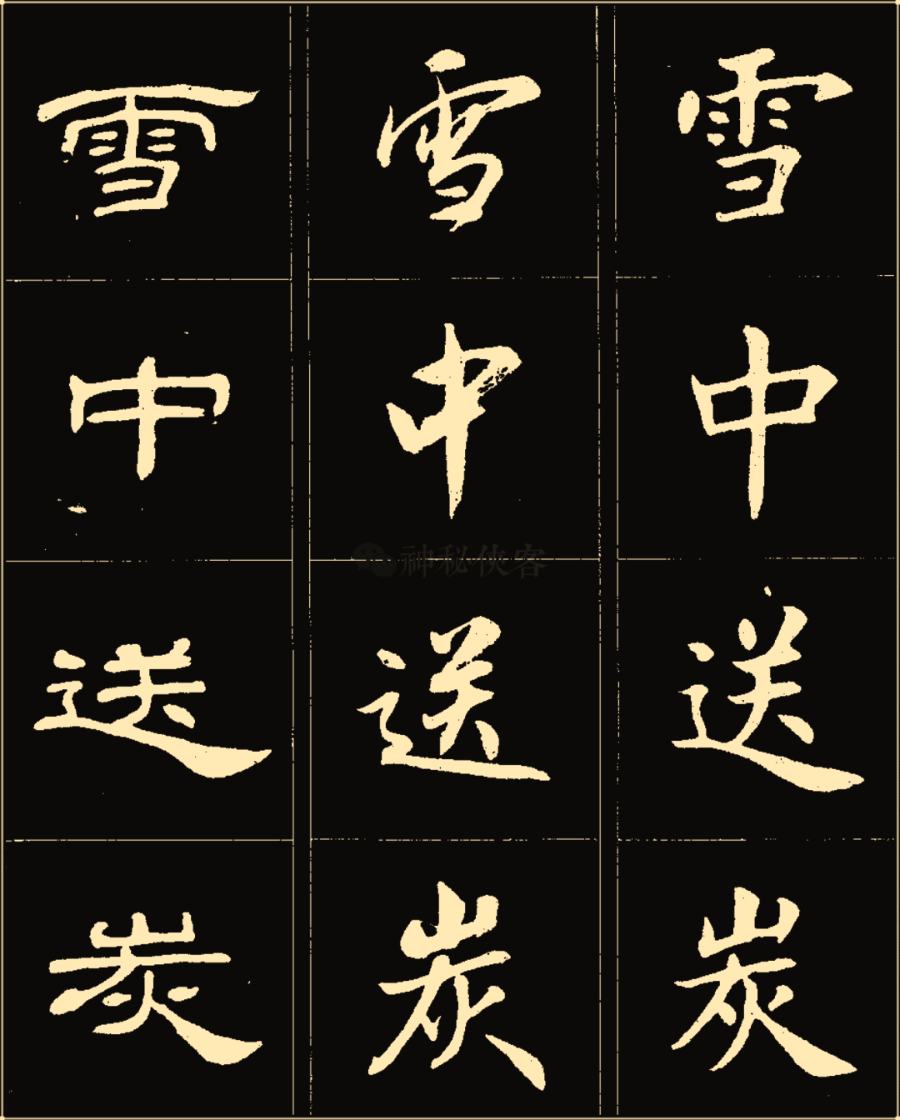 雪 雪 雪
中 中 中
神秘侠客
送 送 送
炭 炭 炭